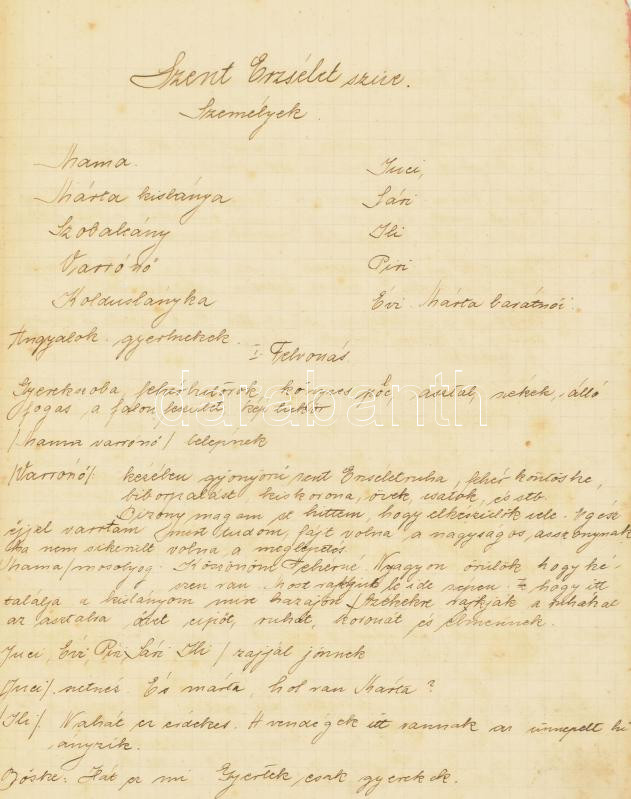 Szent Erzsébet szíve.
Személyek.
Mama. Juci,
Márta kislánya Sári
Szobalány Ili
Varrónő Piri
Kolduslányka Évi Márta barátnői.
Angyalok gyermekek.
I. Felvonás
Gyerekszoba, fehér bútorok, könyves polc, asztal, székek, álló
fogas, a falon feszület, kép tükör
/Mama varrónő/ belépnek
/Varrónő/ kezében gyönyörű szent Erzsébet ruha, fehér köntöske,
bíborpalást, kiskorona, övek, csatok, és stb.
Bizony magam se hittem, hogy elkészülök vele. Egész
éjjel varrtam mert tudom, fájt volna a nagyságos asszonynak
ha nem sikerült volna a meglepetés.
Mama/ mosolyog. Köszönöm Fehérné. Nagyon örülök hogy ké-
szen van. Most rakjuk le ide szépen hogy itt
találja a kislányom mire hazajön /székekre rakják a ruhákat
az asztalra cipőt, ruhát, koronát és elmennek.
Juci, Évi, Piri, Sári Ili / zajjal jönnek
/Juci/ szétnéz. És Márta, hol van Márta?
/Ili/ Nahát ez érdekes. A vendégek itt vannak az ünnepelt hi
ányzik.
Böske: Hát ez mi Gyertek csak gyerekek.
darabanth